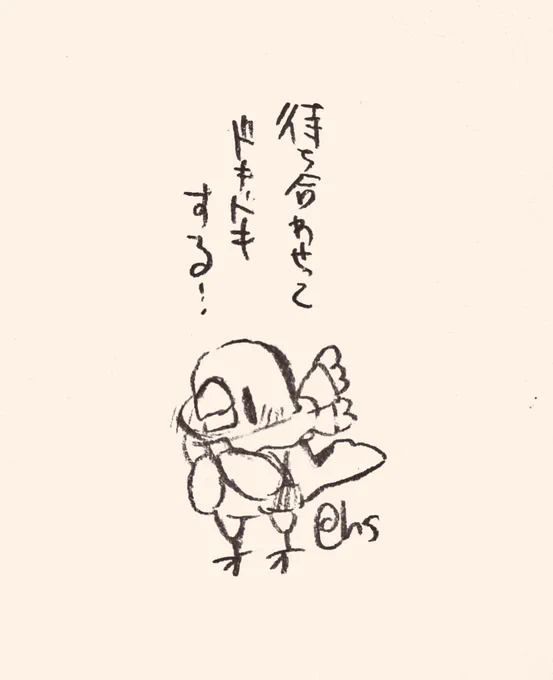 待ち合わせって
ドキドキ
する！
@hs